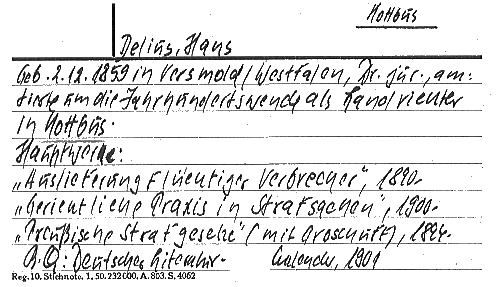 Kottbus
Delius, Hans
Geb. 2.12.1859 in Versmold/Westfalen, Dr. jur., am-
tierte um die Jahrhundertswende als Landrichter
in Kottbus.
Hauptwerke:
„Auslieferung flüchtiger Verbrecher", 1890-
„Gerichtliche Praxis in Strafsachen", 1900-
„Preußische Strafgesetze" (mit Groschuff), 1894-
Deutscher Literatur- Kalender, 1901
Reg. 10. Stichnote. 1, 50. 232 000. A. 803. S. 4062